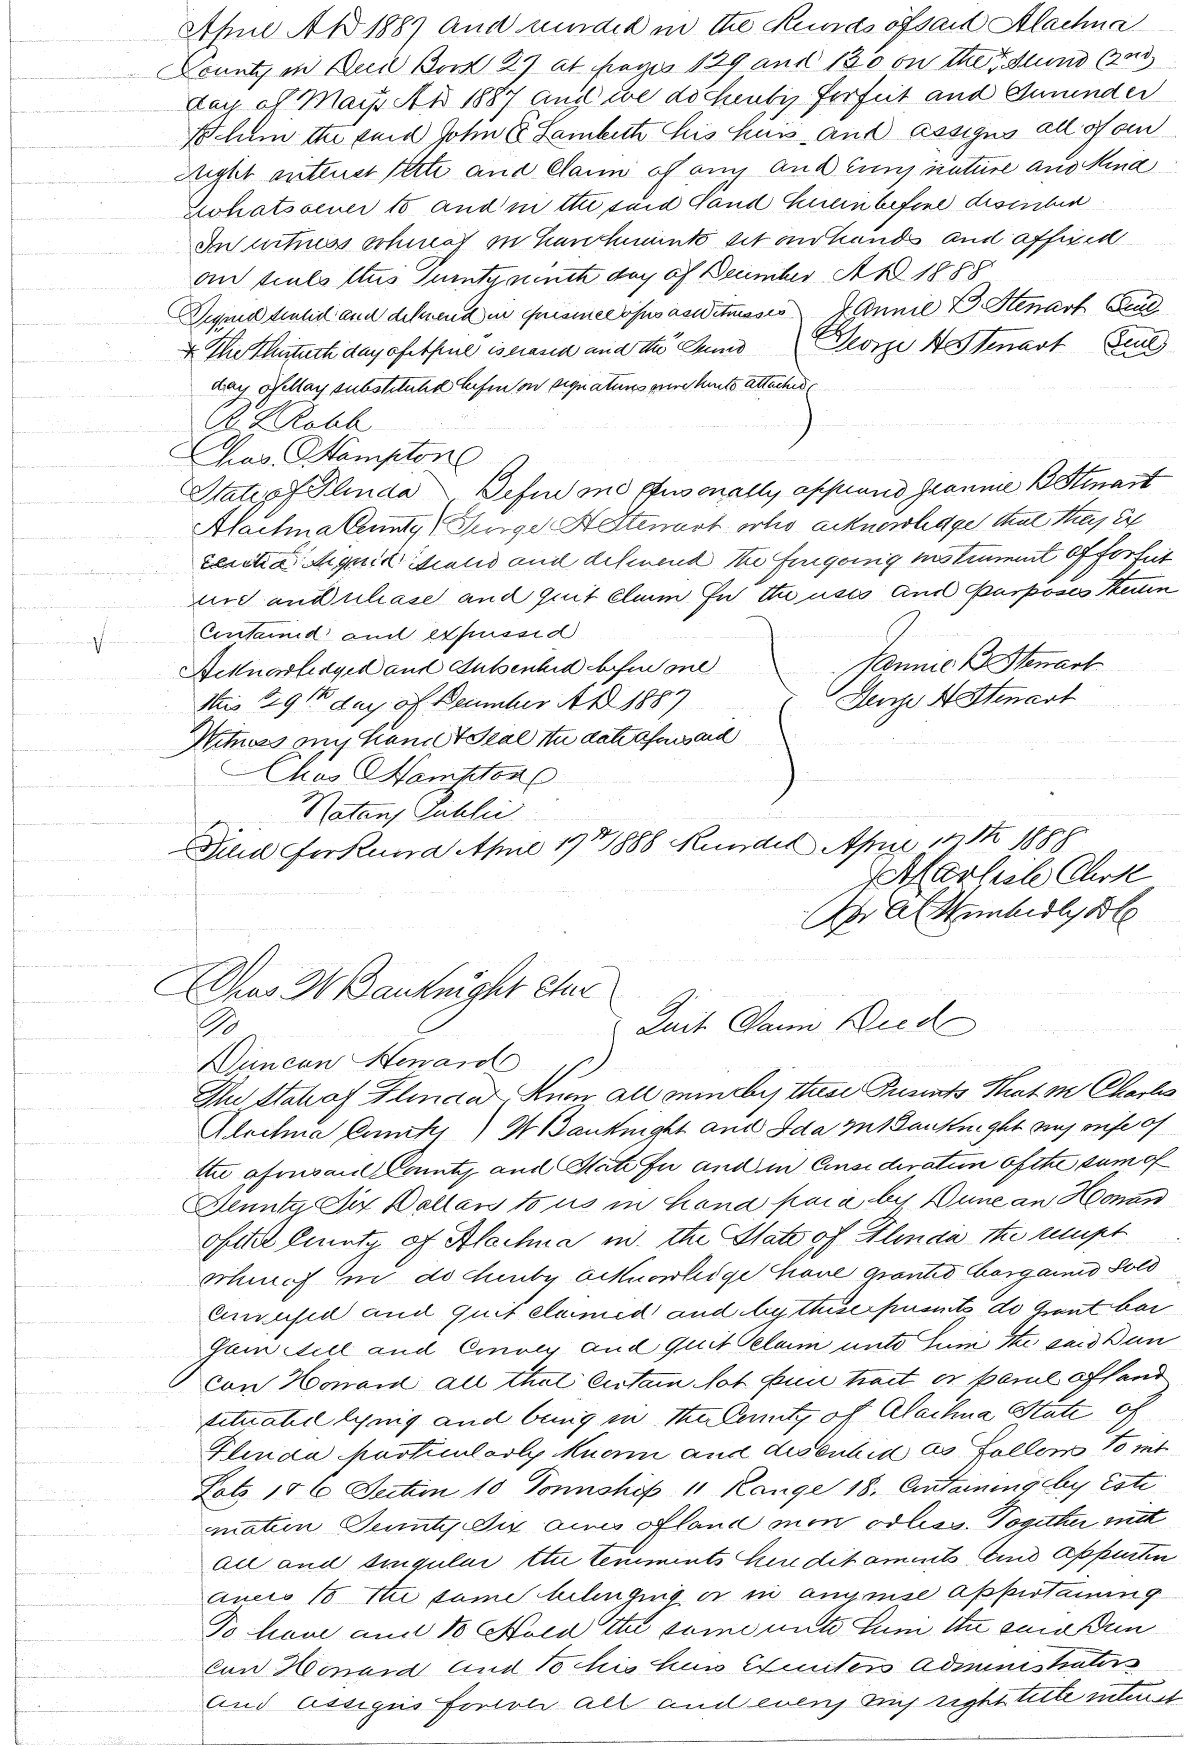 April AD 1887 and recorded in the Records of said Alachua
County in Deed Book 27 at pages 129 and 130 on the Second (2nd)
day of May AD 1887 and we do hereby forfeit and surrender
to him the said John C Lambeth his heirs and assigns all of our
right interest title and claim of any and every nature and kind
whatsoever to and in the said land herein before described
In witness whereof we have hereunto set our hands and affixed
our seals this Twenty ninth day of December AD 1888
Signed sealed and delivered in presence of us as witnesses Jannie B. Stewart Seal
+ "The Thirtieth day of April" is erased and the "Second George H Stewart Seal
day of May substituted before our signatures were hereto attached
R L Robb
Chas. C Hampton
State of Florida Before me personally appeared Jeannie B Stewart
Alachua County George H Stewart who acknowledge that they Ex
ecuted signed sealed and delivered the foregoing instrument of forfeit
ure and release and quit claim for the uses and purposes therein
Contained and expressed
Acknowledged and subscribed before me Jannie B Stewart
this 29th day of December AD 1887 George H Stewart
Witness my hand & Seal the date aforesaid
Chas C Hampton
Notary Public
Filed for Record April 17th 1888 Recorded April 17th 1888
J A Carlisle Clerk
Per A C Wimberly DC
Chas W Bauknight et ux
To Quit Claim Deed
Duncan Howard
The State of Florida Know all men by these Presents That we Charles
Alachua County W Bauknight and Ida M Bauknight my wife of
the aforesaid County and State for and in Consideration of the sum of
Seventy Six Dollars to us in hand paid by Duncan Howard
of the County of Alachua in the State of Florida the receipt
whereof we do hereby acknowledge have granted bargained Sold
Conveyed and quit claimed and by these presents do Grant bar
gain sell and Convey and quit claim unto him the said Dun
can Howard all that Certain lot piece tract or parcel of land
situated lying and being in the County of Alachua State of
Florida particularly known and described as follows to wit
Lots 1 & 6 Section 10 Township 11 Range 18. Containing by Esti
mation Seventy Six acres of land more or less. Together with
all and singular the tenements hereditaments and appurten
ances to the same belonging or in any wise appertaining
To have and to Hold the same unto him the said Dun
can Howard and to his heirs Executors administrators
and assigns forever all and every my right title interest